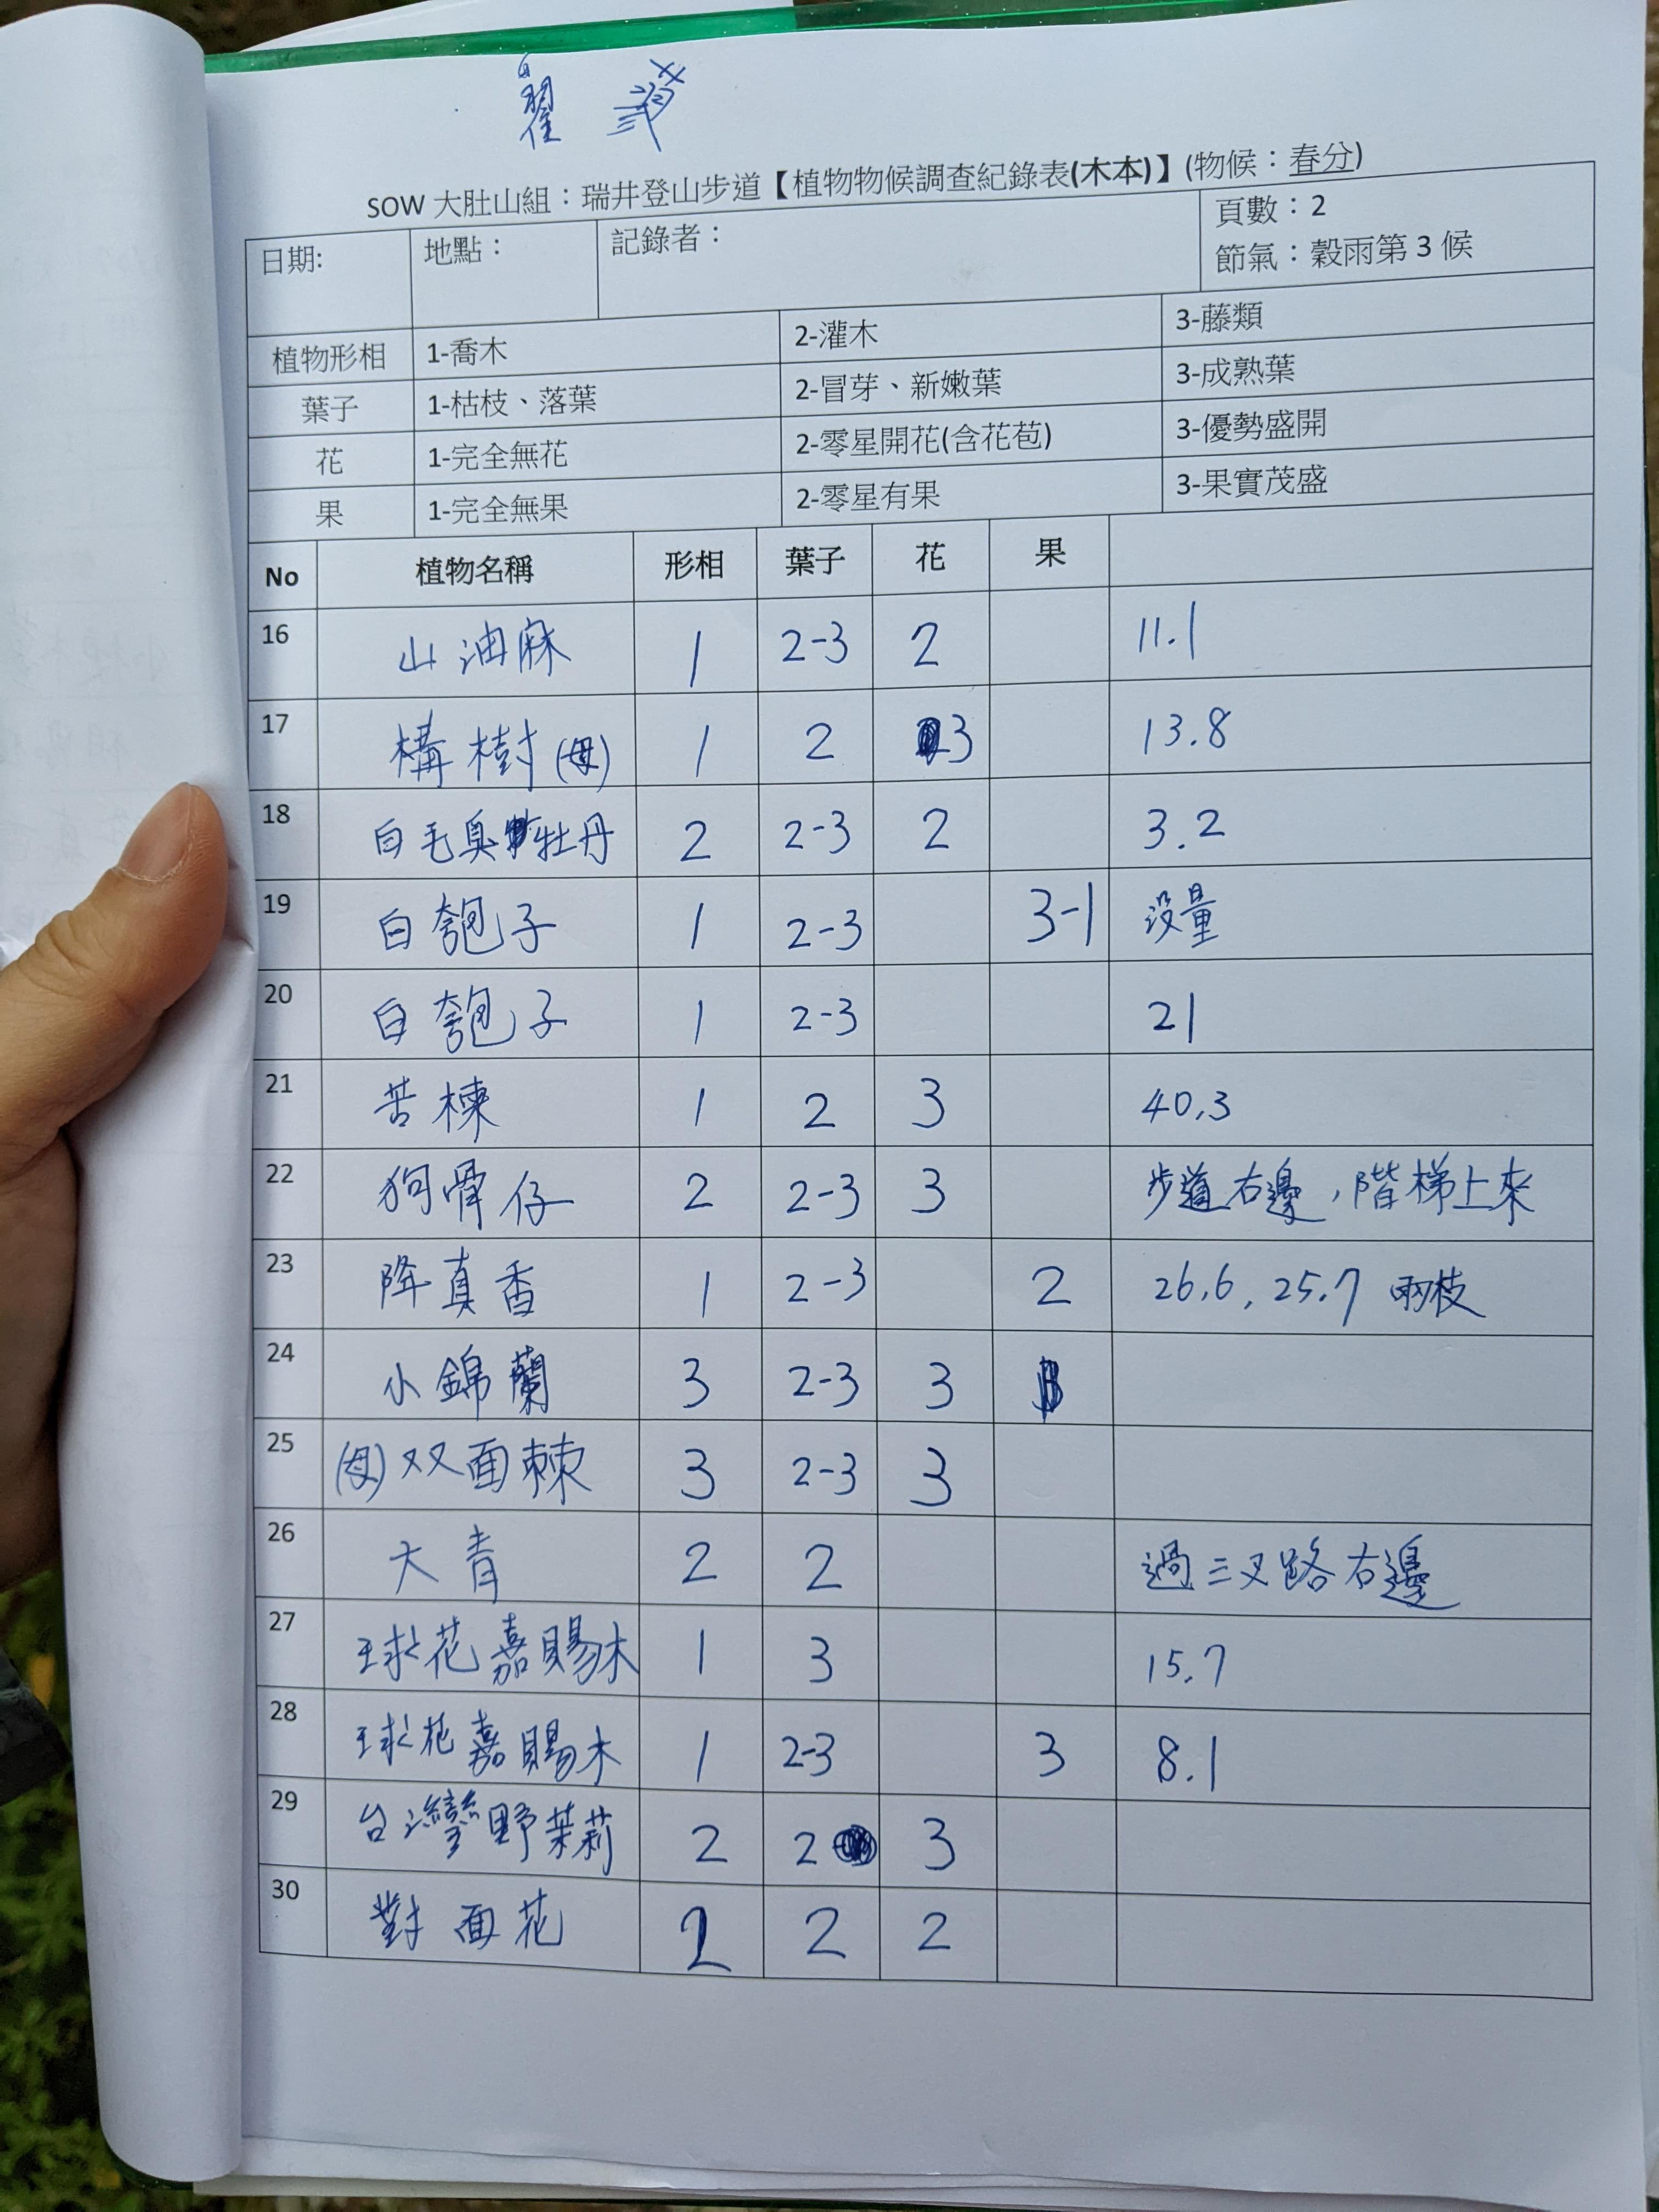 SOW 大肚山組：瑞井登山步道【植物物候調查紀錄表(木本)】(物候：春分)
日期: 地點： 記錄者： 頁數：2
節氣：穀雨第 3 候
植物形相 1-喬木 2-灌木 3-藤類
葉子 1-枯枝、落葉 2-冒芽、新嫩葉 3-成熟葉
花 1-完全無花 2-零星開花(含花苞) 3-優勢盛開
果 1-完全無果 2-零星有果 3-果實茂盛
No 植物名稱 形相 葉子 花 果
16 山油麻 1 2-3 2 11.1
17 構樹(母) 1 2 3 13.8
18 白毛臭牡丹 2 2-3 2 3.2
19 白匏子 1 2-3 3-1 沒量
20 白匏子 1 2-3 21
21 苦楝 1 2 3 40.3
22 狗骨仔 2 2-3 3 步道右邊，階梯上來
23 降真香 1 2-3 2 26.6, 25.7 兩枝
24 小錦蘭 3 2-3 3
25 (母)双面棘 3 2-3 3
26 大青 2 2 過三叉路右邊
27 球花嘉賜木 1 3 15.7
28 球花嘉賜木 1 2-3 3 8.1
29 台灣野茉莉 2 2 3
30 對面花 2 2 2